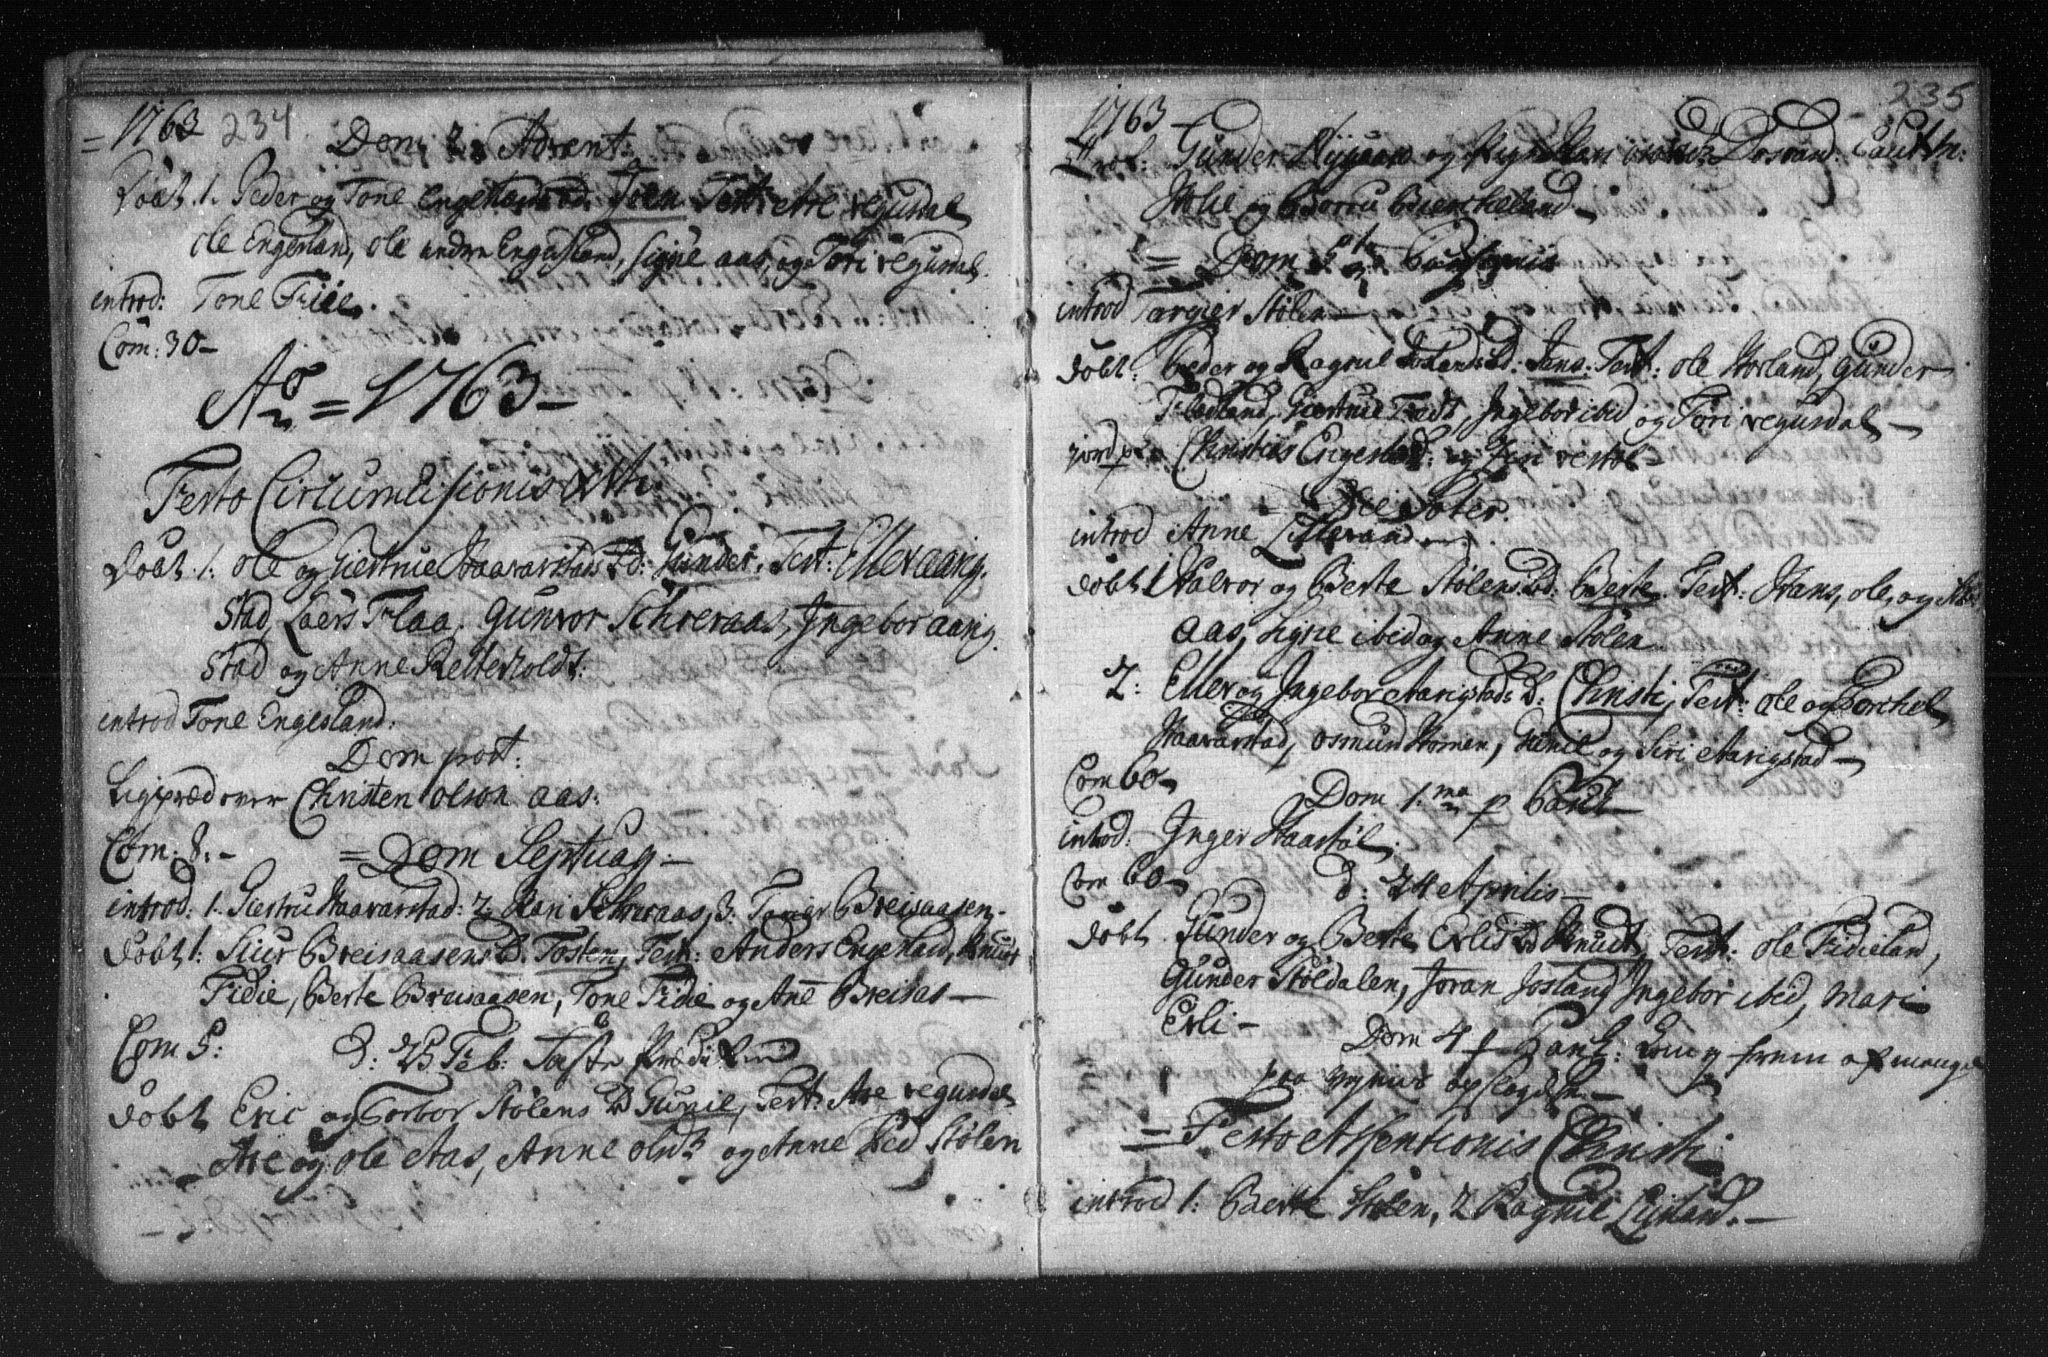 1763 234
Dom 2. Advent:
Döbt 1. Peder og Tone Engeslands d. Joen Test: Are Vegusdal
Ole Engesland, Ole andre Engesland, Signe Aas, og Tori Vegusdal.
introd: Tone Fidie.
Com: 30 –
Ao = 1763 –
Festo Circumcisionis Xsti.
Döbt 1: Ole og Giertrue Haavarstads d: Gunder. Test: Eller Aang.
Stad, Laers Flaa. Gunvor Schreraas, Ingebor Aang
Stad og Anne Retterholdt.
introd Tone Engesland:
Dom post:
Ligpræd over Christen Olson Aas:
Com: 8. – = Dom Septuag: –
introd: 1. Giertru Haavarstad: 2 Kari Schreraas, 3. Toner Breisaasen.
Döbt 1: Siur Breisaasens d. Tosten, Test: Anders Engesland, Knudt
Fidie, Berte Breisaasen, Tone Fidie og Ane Breisas –
Com 5: d: 25 Feb:
Döbt Eric og Torbor Stölens d Gunil, Test: Are Vegusdal
Are og Ole Aas, Anne og Anne Stölen
235
1763 –
Trol: Gunder og
og Borru Bierckeland –
= Dom
introd Targier Stölen –
döbt: Peder og Ragnil d: Jens. Test: Ole Hosland, Gunder
Fladland, Giertrue Tradt, Ingebor ibid og Tori Vegusdal –
jordp: Christies Engesland: og Vestöl –
introd Anne Lillevand
döbt 1 Halvor og Berte Stölens d: Berte. Test: Hans, Ole, og
Aas, Signe ibid og Anne Stölen.
2: Eller og Ingebor Aarigstads d: Christi, Test: Ole og Torchel
Haavarstad, Osmund Homen, Gunil og Siri Aarigstad –
Com 60 – Dom 1.ma p Pasch
introd: Inger Haastöl.
Com 60 – d: 24 Aprilis –
döbt Gunder og Berte Erlid d Knudt, Test: Ole Fidieland,
Gunder Stöldalen, Joran Josland, Ingebor ibid, Mari
Erli – Dom 4 p Pasch: Kom ey frem af mangel
paa
= Festo Assentionis Christi
introd 1: Berte Stölen, 2 Ragnil –